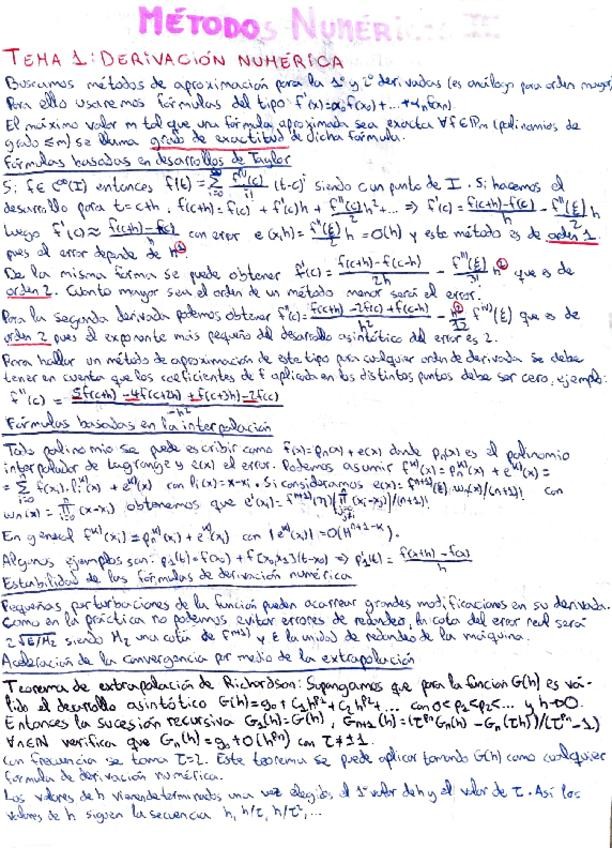 MÉTODOS NUMÉRICOS II
TEMA 1: DERIVACIÓN NUMÉRICA
Buscamos métodos de aproximación para la 1ª y 2ª derivadas (es análogo para orden mayor)
Para ello usaremos fórmulas del tipo f'(x)=α₀f(x₀)+...+αₙf(xₙ).
El máximo valor m tal que una fórmula aproximada sea exacta ∀f∈ℙm (polinomios de
grado ≤m) se llama grado de exactitud de dicha fórmula.
Fórmulas basadas en desarrollos de Taylor
Si f∈C^∞(I) entonces f(t)=∑_{i=0}^∞ f^{(i)}(c)/i! (t-c)^i siendo c un punto de I. Si hacemos el
desarrollo para t=c+h, f(c+h)=f(c)+f'(c)h+f''(c)/2 h²+... ⇒ f'(c)=(f(c+h)-f(c))/h - f''(ξ)/2 h
Luego f'(c)≈(f(c+h)-f(c))/h con error e(x,h)=f''(ξ)/2 h=O(h) y este método es de orden 1.
pues el error depende de h^1.
De la misma forma se puede obtener f'(c)=(f(c+h)-f(c-h))/2h - f'''(ξ)/3! h² que es de
orden 2. Cuanto mayor sea el orden de un método menor será el error.
Para la segunda derivada podemos obtener f''(c)=(f(c+h)-2f(c)+f(c-h))/h² - h²/12 f^{IV)}(ξ) que es de
orden 2 pues el exponente más pequeño del desarrollo asintótico del error es 2.
Para hallar un método de aproximación de este tipo para cualquier orden de derivada se debe
tener en cuenta que los coeficientes de f aplicada en los distintos puntos debe ser cero, ejemplo:
f''(c) = (5f(c+h)-4f(c+2h)+f(c+3h)-2f(c))/-h²
Fórmulas basadas en la interpolación
Todo polinomio se puede escribir como f(x)=pₙ(x)+e(x) donde pₙ(x) es el polinomio
interpolador de Lagrange y e(x) el error. Podemos asumir f^{(k)}(x)=pₙ^{(k)}(x)+e^{(k)}(x)=
=∑_{i=0}^n f(xᵢ)·lᵢ^{(k)}(x)+e^{(k)}(x) con lᵢ(x)=x-xᵢ. Si consideramos e(x)=f^{(n+1)}(ξ)wₙ(x)/(n+1)! con
wₙ(x)=∏_{i=0}^n(x-xᵢ) obtenemos que e'(xᵢ)=f^{(n+1)}(η)∏_{j=0, j≠i}^n(xᵢ-xⱼ)/(n+1)!
En general f^{(k)}(xᵢ)=pₙ^{(k)}(xᵢ)+e^{(k)}(xᵢ) con |e^{(k)}(xᵢ)|=O(H^{n+1-k}).
Algunos ejemplos son: p₁(t)=f(x₀)+f[x₀,x₁](t-x₀) ⇒ p'₁(t)=(f(x+h)-f(x))/h
Estabilidad de las fórmulas de derivación numérica
Pequeñas perturbaciones de la función pueden acarrear grandes modificaciones en su derivada.
Como en la práctica no podemos evitar errores de redondeo, la cota del error real será
2√E/M₂ siendo M₂ una cota de f^{(n+1)} y E la unidad de redondeo de la máquina.
Aceleración de la convergencia por medio de la extrapolación
Teorema de extrapolación de Richardson: Supongamos que para la función G(h) es vá-
lido el desarrollo asintótico G(h)=g₀+C₁h^{p₁}+C₂h^{p₂}+... con 0<p₁<p₂<... y h→0.
Entonces la sucesión recursiva G₁(h)=G(h), G_{n+1}(h)=(τ^{pₙ}Gₙ(h)-Gₙ(τh))/(τ^{pₙ}-1)
∀n∈ℕ verifica que Gₙ(h)=g₀+O(h^{pₙ}) con τ≠±1.
Con frecuencia se toma τ=2. Este teorema se puede aplicar tomando G(h) como cualquier
fórmula de derivación numérica.
Los valores de h vienen determinados una vez elegidos el 1º valor de h y el valor de τ. Así los
valores de h siguen la secuencia h, h/τ, h/τ²,...